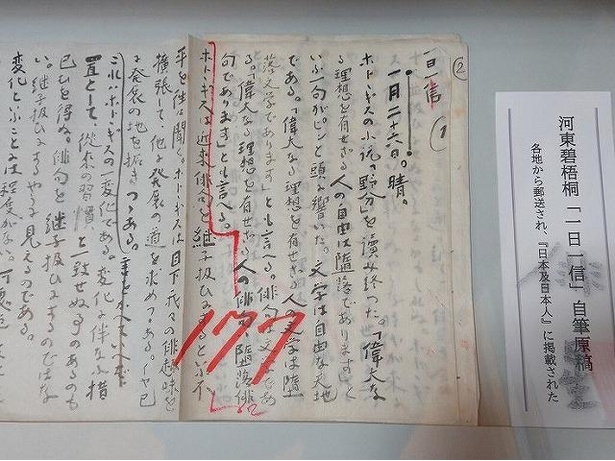 河東碧梧桐「一日一信」自筆原稿
各地から郵送され、『日本及日本人』に掲載された
②
一日一信 (1)
一月二十六日。晴。
ホトトギスの小説「野分」を讀み終つた。「偉大な
る理想を有せざる人の自由は墮落であります」と
いふ一句がピンと頭に響いた。文学は自由な天地
である。「偉大なる理想を有せざる人の文学は墮
落文学であります」とも言へる。俳句も文学であ
る。「偉大なる理想を有せざる人の俳句は墮落俳
句であります」とも言へる。
ホトトギスは近来俳句を継子扱ひにするといふ不
平を往々聞く。ホトトギスは目下我々の俳趣味を
擴張して、他に發展の道を求めつゝある。イヤ已
に發展の地を拓きつゝある。
これはホトトギスの変化である。変化に伴なふ措
置として、從来の習慣と一致せぬ事のあるのも
已むを得ぬ。俳句を継子扱ひにするのではな
い。継子扱ひにするやうに見えるのである。
変化といふことには程度がない。
177